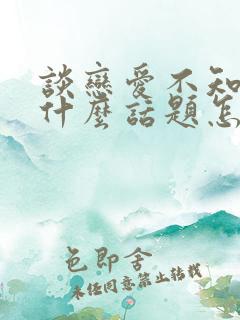 談戀愛不知
什麼話題怎
色即舍
未經同意禁止轉載